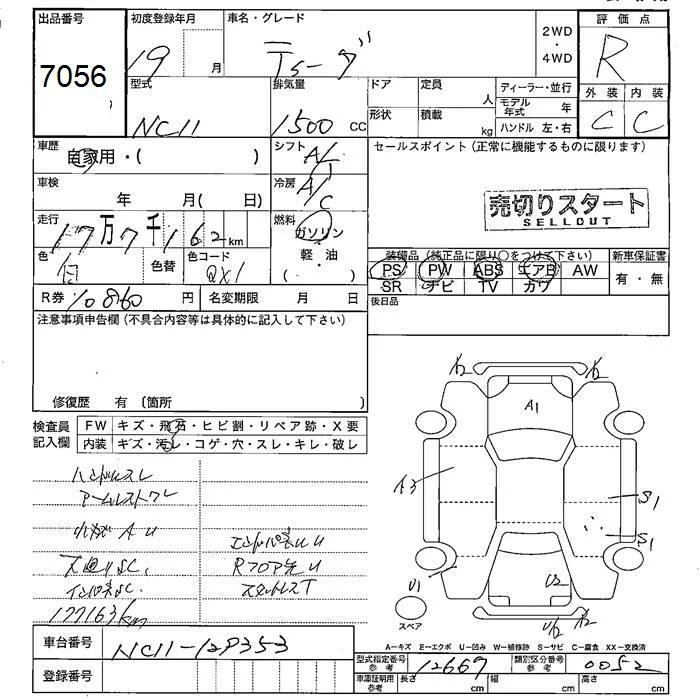 出品番号 初度登録年月 車名・グレード 2WD ・ 4WD 評価点
7056 19 月 ティーダ R
型式 排気量 ドア 定員 人 ティーラー・並行 外装 内装
NC11 1500 cc 形状 積載 kg モデル年式 年 C C
ハンドル 左・右
車歴 自家用・( ) シフト A/ セールスポイント(正常に機能するものに限ります)
車検 年 月( 日) 冷房 A/C
売切りスタート
SELLOUT
走行 17万7千162km 燃料 ガソリン
軽・油 ( )
色 白 色替 色コード QX1
装備品(純正品に限り○をつけて下さい) 新車保証書
PS PW ABS エアB AW 有・無
SR ナビ TV カワ
R券 10860 円 名変期限 月 日 後日品
注意事項申告欄(不具合内容等は具体的に記入して下さい)
修復歴 有(箇所 )
検査員記入欄 FW キズ・飛石・ヒビ割・リペア跡・X要
内装 キズ・汚れ・コゲ・穴・スレ・キレ・破レ
ハンドルスレ
アームレストワレ
小キズ A U
エンドパネル U
Rフロア先 U
インパネSC.
177163km
A2 A2
A1
A3 S1
S1
U1 U2
U/2 A2
スペア
A-キズ E-エクボ U-凹み W-補修跡 S-サビ C-腐食 XX-交換済
車台番号 NC11-128353
型式指定番号 参考 12667 類別区分番号 参考 0052
登録番号
車庫証明用 参考 長さ cm 幅 cm 高さ cm